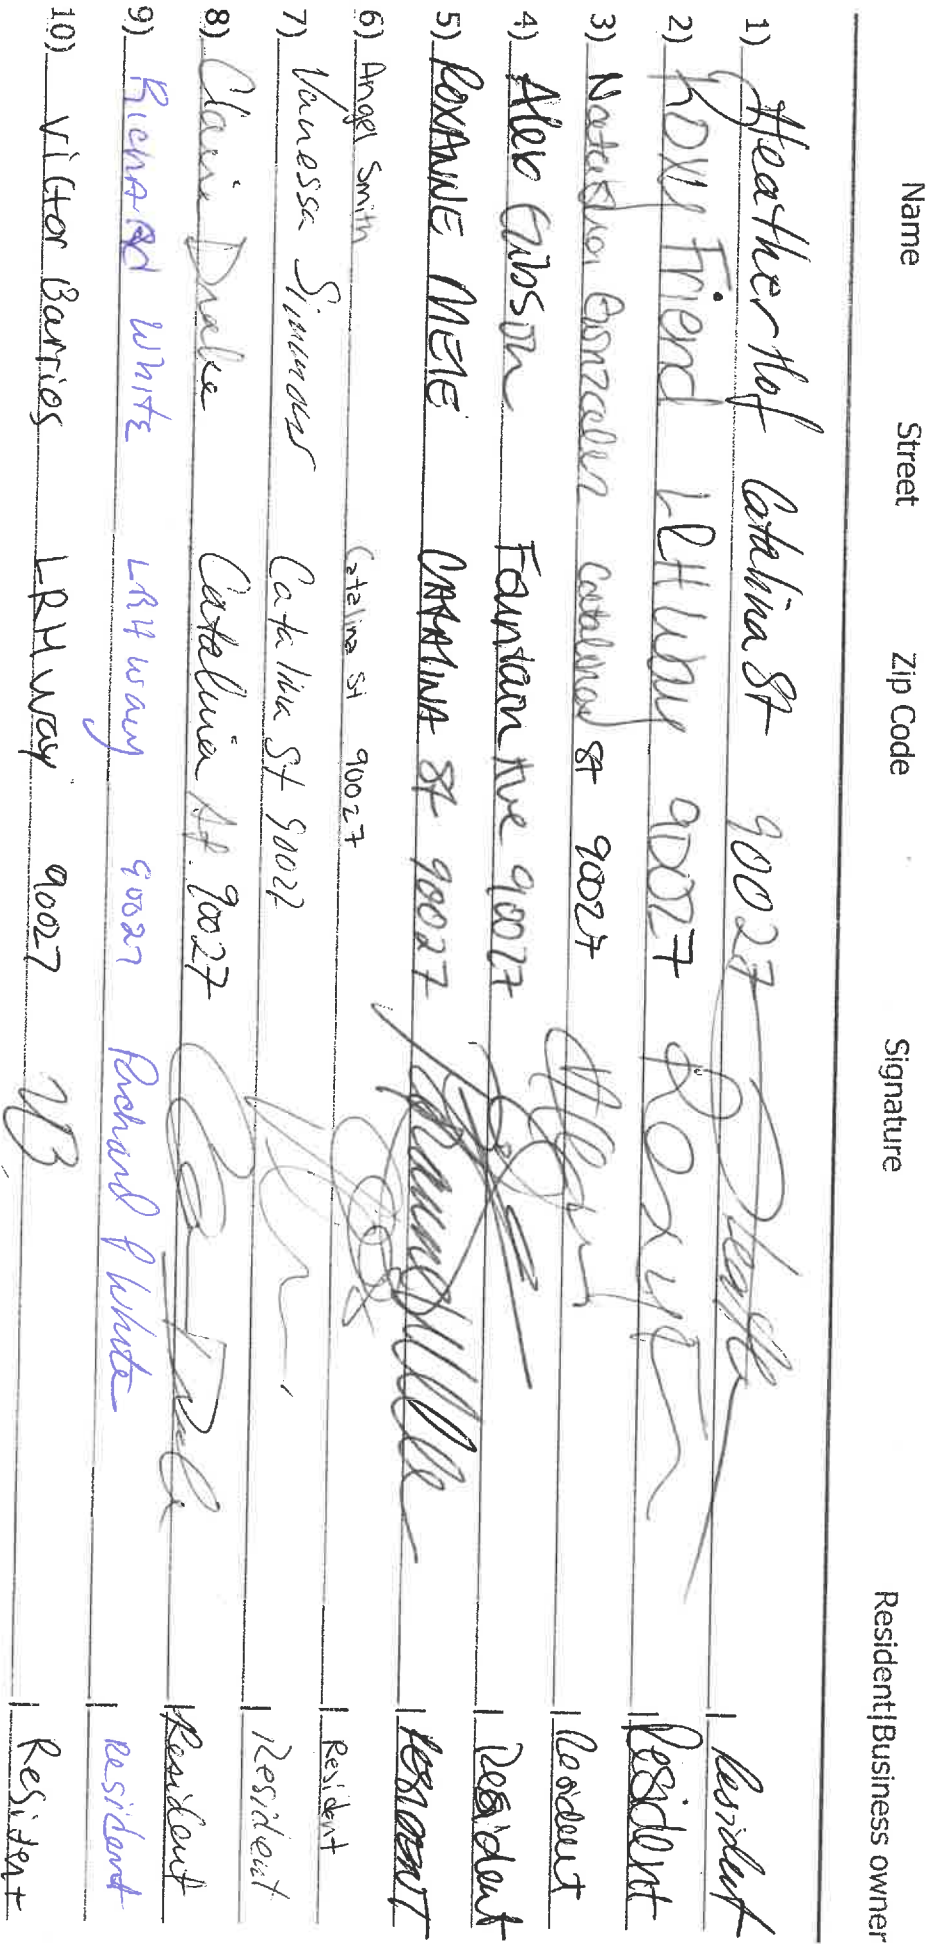 Name Street Zip Code Signature Resident|Business owner
1) Heather Hof Catalina St 90027 Resident
2) Roxy Friend LRH way 90027 Roxy F Resident
3) Natasha Gonzalez Catalina St 90027 Resident
4) Alex Gibson Fountain Ave 90027 Resident
5) ROXANNE MEIE CATALINA St 90027 RESIDENT
6) Angel Smith Catalina St 90027 Resident
7) Vanessa Simmons Catalina St 90027 Resident
8) Drake Catalina St. 90027 Resident
9) RicHARd WhitE LRH way 90027 Richard P White Resident
10) Victor Barrios LRH way 90027 VB Resident